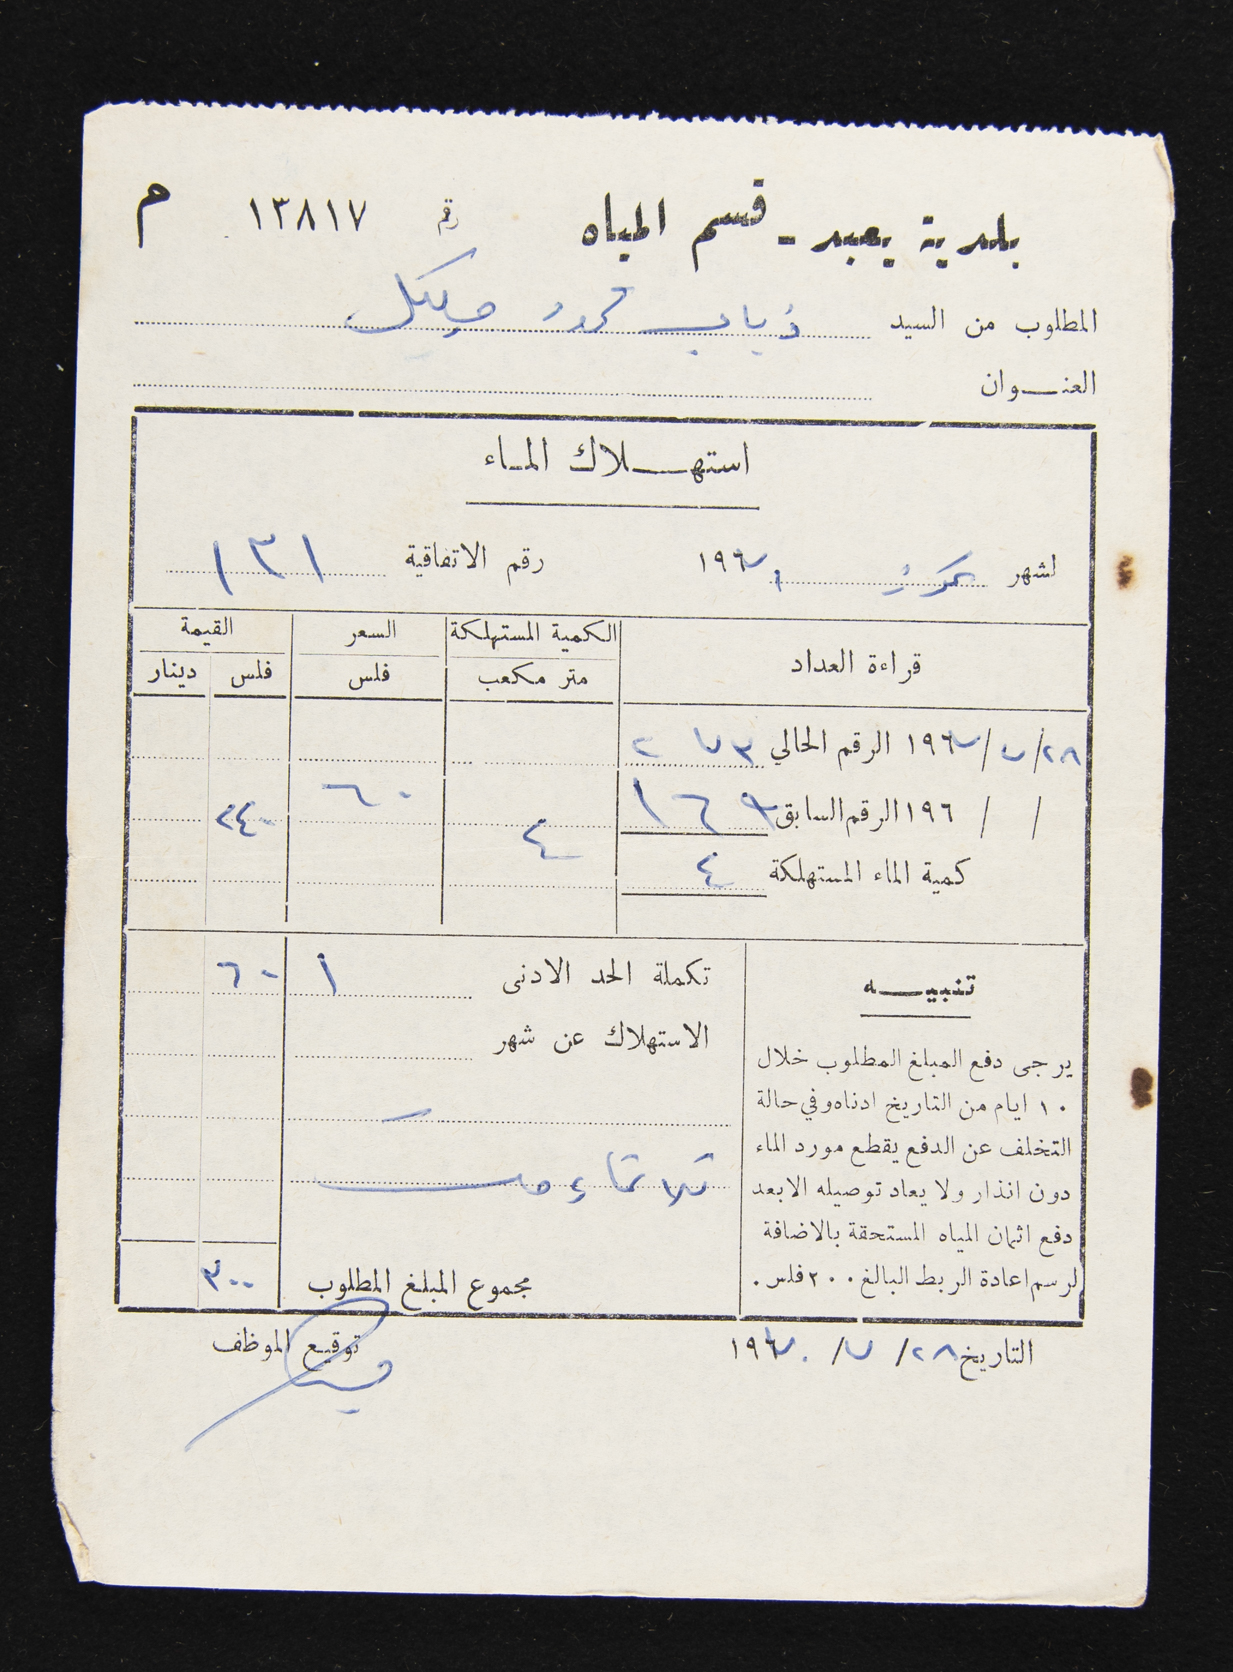 بلدية يعبد - قسم المياه رقم ١٣٨١٧ م
المطلوب من السيد ذياب محمود
العنــوان
استهــلاك المـاء
لشهر تموز ١٩٦ رقم الاتفاقية ١٣١
قراءة العداد الكمية المستهلكة السعر القيمة
متر مكعب فلس فلس دينار
٢٨/٧/١٩٦٧ الرقم الحالي ٢٧٣
/ / ١٩٦ الرقم السابق ١٦٩ ٤ ٦٠ ٢٤٠
كمية الماء المستهلكة ٤
تنبيــه
يرجى دفع المبلغ المطلوب خلال
١٠ ايام من التاريخ ادناه وفي حالة
التخلف عن الدفع يقطع مورد الماء
دون انذار ولا يعاد توصيله الا بعد
دفع اثمان المياه المستحقة بالاضافة
لرسم اعادة الربط البالغ ٢٠٠ فلس.
تكملة الحد الادنى ١ ٦٠
الاستهلاك عن شهر
مجموع المبلغ المطلوب ٣٠٠
التاريخ ٢٨/٧/١٩٦٧ توقيع الموظف